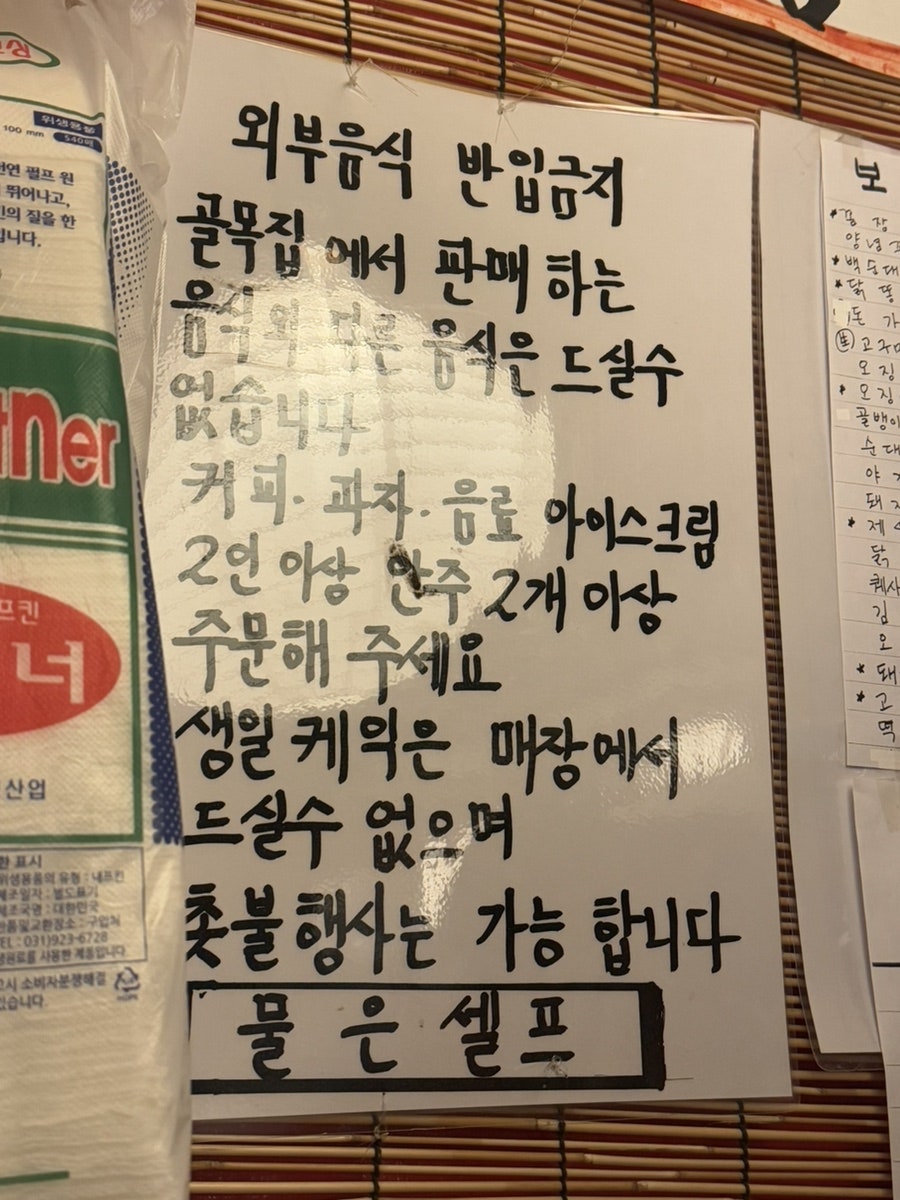 외부음식 반입금지
골목집 에서 판매 하는
음식외 다른 음식은 드실수
없습니다
커피. 과자. 음료 아이스크림
2인 이상 안주 2개 이상
주문해 주세요
생일 케익은 매장에서
드실수 없으며
촛불행사는 가능 합니다
물 은 셀 프
위생용품
100 mm
540매
천연 펄프 원
뛰어나고,
의 질을 한
입니다.
ner
프킨
너
산업
환 표시
위생용품의 유형 : 내프킨
제조일자 : 별도표기
제조국명 : 대한민국
반품및교환장소 : 구입처
TEL : 031)923-6728
원료를 사용한 제품입니다.
고시 소비자분쟁해결
있습니다.
보
* 백순대
* 닭 똥
돈 가
오 징
* 오 징
골뱅이
순 대
닭
김
오
* 돼
* 고